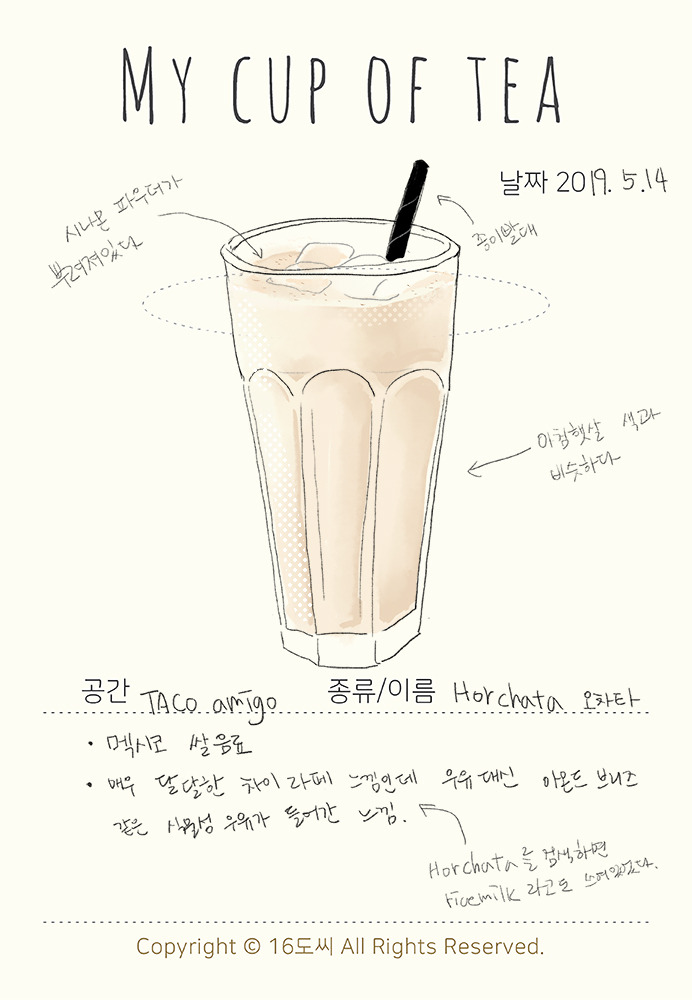 My cup of tea
날짜 2019. 5.14
시나몬 파우더가
뿌려져있다
종이빨대
아침햇살 색과
비슷하다
공간 TACO amigo 종류/이름 Horchata 오차타
• 멕시코 쌀음료
• 매우 달달한 차이라떼 느낌인데 우유 대신 아몬드 브리즈
같은 식물성 우유가 들어간 느낌.
Horchata를 검색하면
ricemilk 라고도 쓰여있었다.
Copyright © 16도씨 All Rights Reserved.